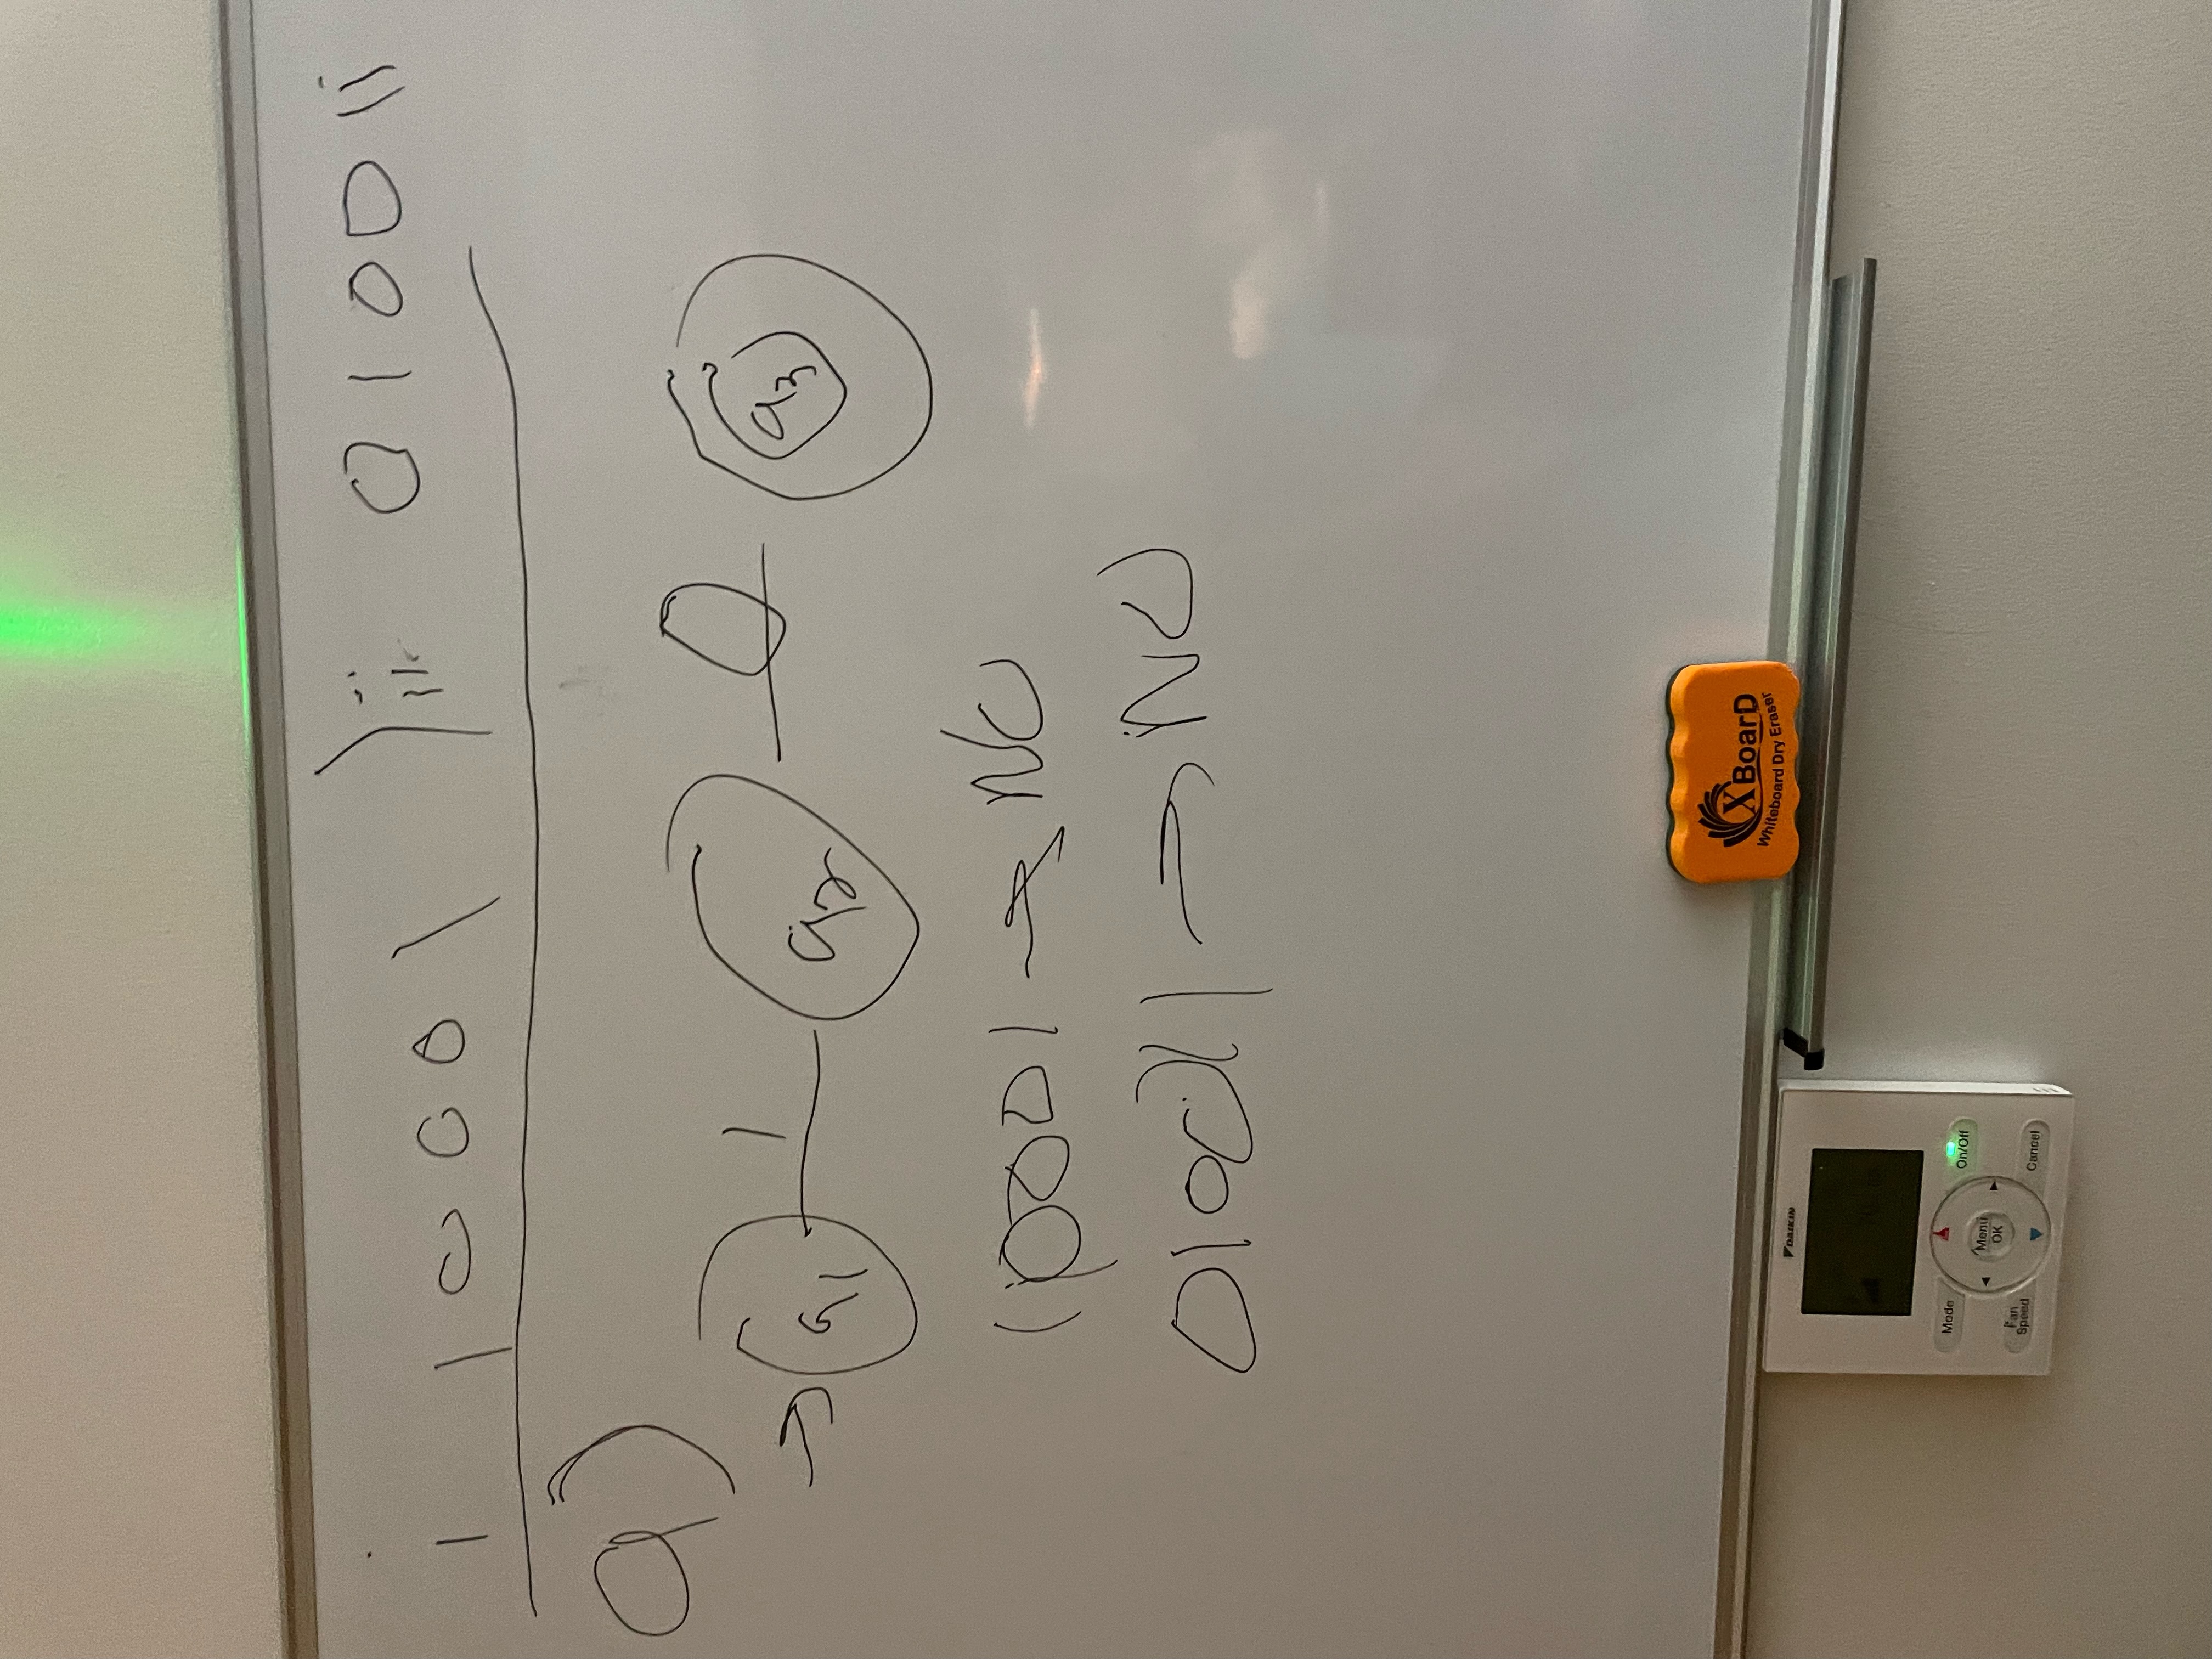 i 10001 ) ii 010011
a)
→ q1 1 q2 0 q3
10001 → NO
010011 → NO
XBoarD
Whiteboard Dry Eraser
DAIKIN
Mode
On/Off
Menu
OK
Fan
Speed
Cancel